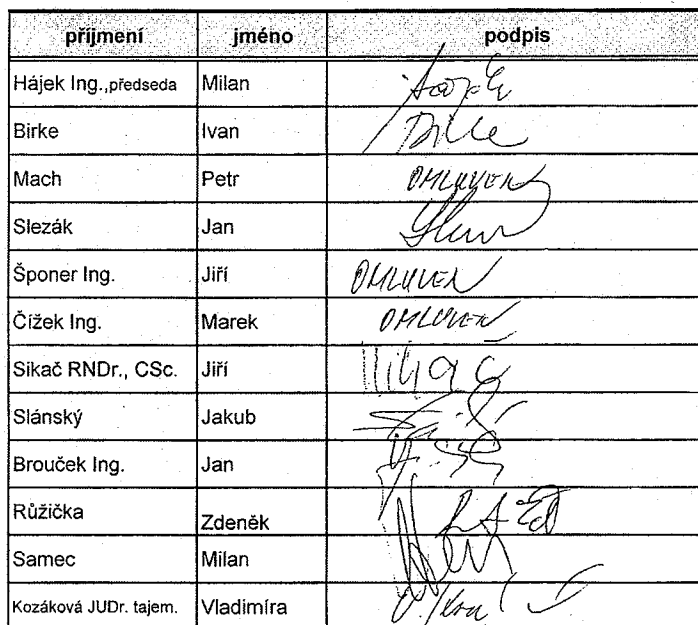 příjmení jméno podpis
Hájek Ing.,předseda Milan
Birke Ivan
Mach Petr OMLUVEN
Slezák Jan
Šponer Ing. Jiří OMLUVEN
Čížek Ing. Marek OMLUVEN
Sikač RNDr., CSc. Jiří
Slánský Jakub
Brouček Ing. Jan
Růžička Zdeněk
Samec Milan
Kozáková JUDr. tajem. Vladimíra